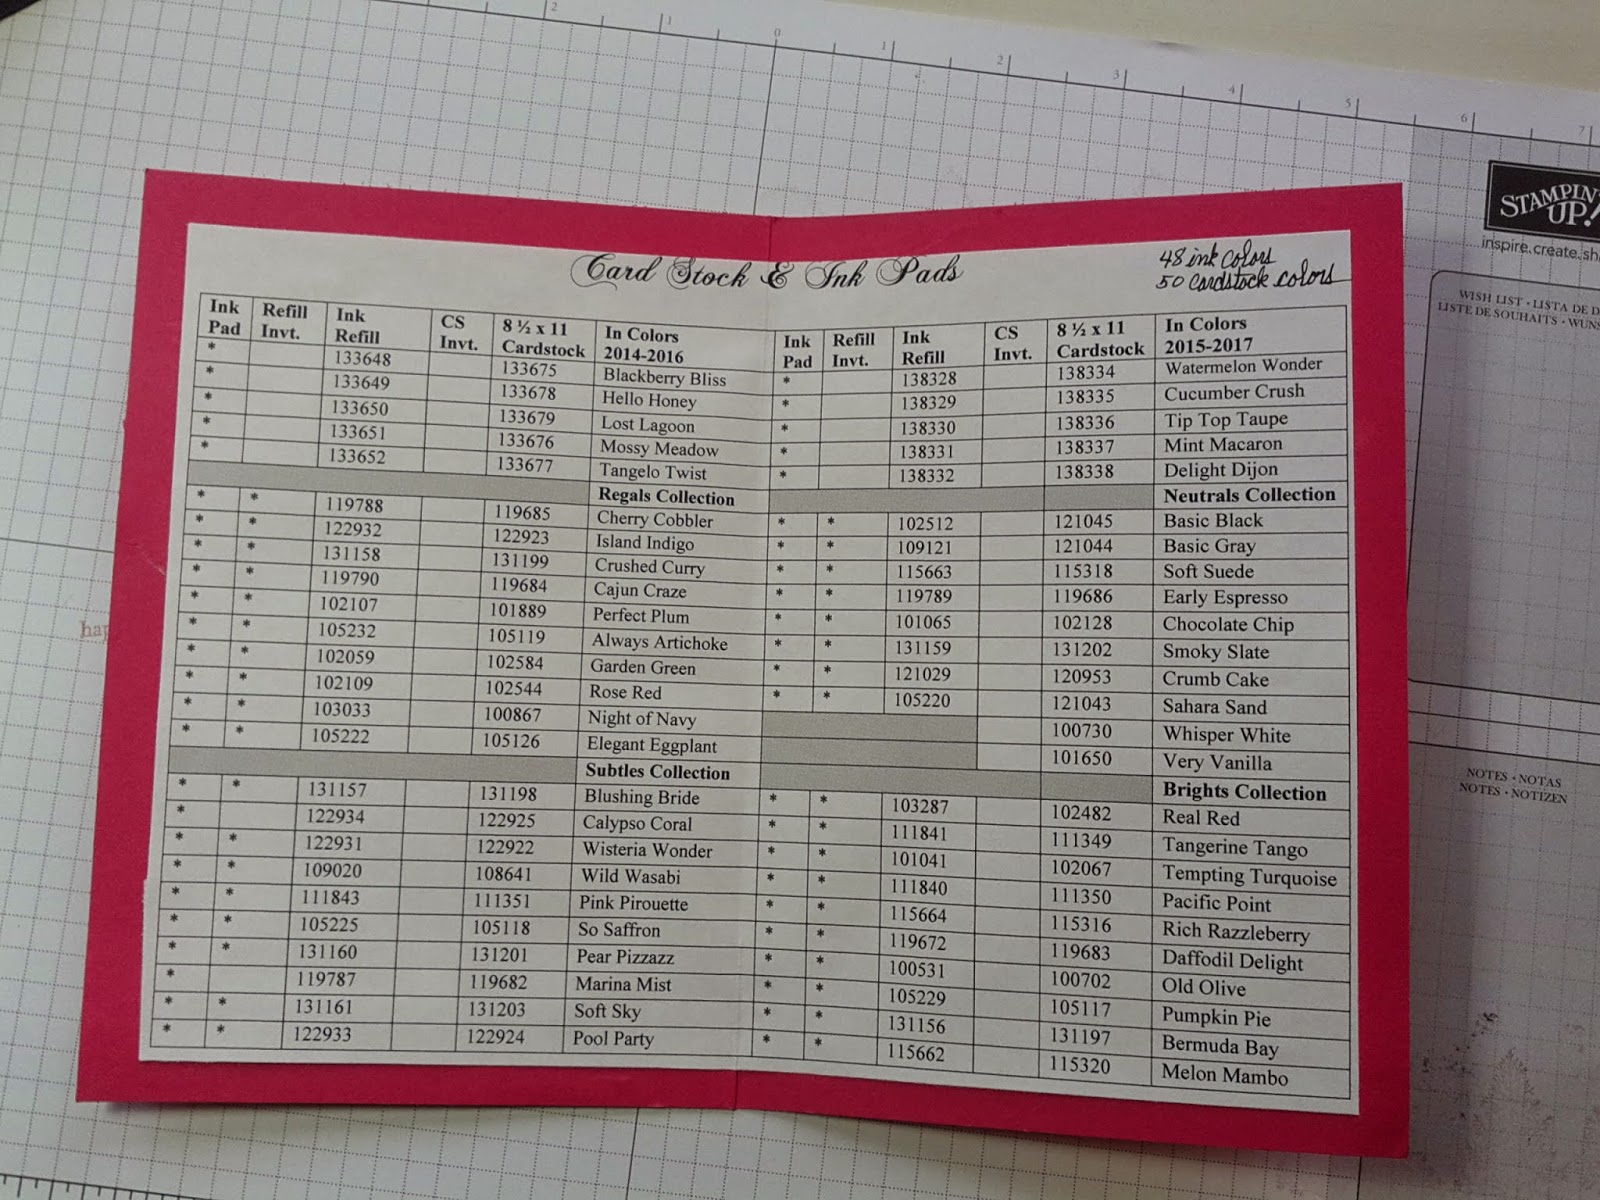 2 1 0 1 2 3 4 5 6 7
STAMPIN' UP!
inspire.create.sh
WISH LIST • LISTA DE D
LISTE DE SOUHAITS • WUNS
NOTES • NOTAS
NOTES • NOTIZEN
hap
Card Stock & Ink Pads
48 ink colors
50 cardstock colors
Ink Pad Refill Invt. Ink Refill CS Invt. 8 ½ x 11 Cardstock In Colors 2014-2016
* 133648 133675 Blackberry Bliss
* 133649 133678 Hello Honey
* 133650 133679 Lost Lagoon
* 133651 133676 Mossy Meadow
* 133652 133677 Tangelo Twist
Regals Collection
* * 119788 119685 Cherry Cobbler
* * 122932 122923 Island Indigo
* * 131158 131199 Crushed Curry
* * 119790 119684 Cajun Craze
* * 102107 101889 Perfect Plum
* * 105232 105119 Always Artichoke
* * 102059 102584 Garden Green
* * 102109 102544 Rose Red
* * 103033 100867 Night of Navy
* * 105222 105126 Elegant Eggplant
Subtles Collection
* * 131157 131198 Blushing Bride
* 122934 122925 Calypso Coral
* * 122931 122922 Wisteria Wonder
* * 109020 108641 Wild Wasabi
* * 111843 111351 Pink Pirouette
* * 105225 105118 So Saffron
* * 131160 131201 Pear Pizzazz
* 119787 119682 Marina Mist
* * 131161 131203 Soft Sky
* * 122933 122924 Pool Party
Ink Pad Refill Invt. Ink Refill CS Invt. 8 ½ x 11 Cardstock In Colors 2015-2017
* 138328 138334 Watermelon Wonder
* 138329 138335 Cucumber Crush
* 138330 138336 Tip Top Taupe
* 138331 138337 Mint Macaron
* 138332 138338 Delight Dijon
Neutrals Collection
* * 102512 121045 Basic Black
* * 109121 121044 Basic Gray
* * 115663 115318 Soft Suede
* * 119789 119686 Early Espresso
* * 101065 102128 Chocolate Chip
* * 131159 131202 Smoky Slate
* * 121029 120953 Crumb Cake
* * 105220 121043 Sahara Sand
100730 Whisper White
101650 Very Vanilla
Brights Collection
* * 103287 102482 Real Red
* * 111841 111349 Tangerine Tango
* * 101041 102067 Tempting Turquoise
* * 111840 111350 Pacific Point
* * 115664 115316 Rich Razzleberry
* * 119672 119683 Daffodil Delight
* * 100531 100702 Old Olive
* * 105229 105117 Pumpkin Pie
* * 131156 131197 Bermuda Bay
* * 115662 115320 Melon Mambo